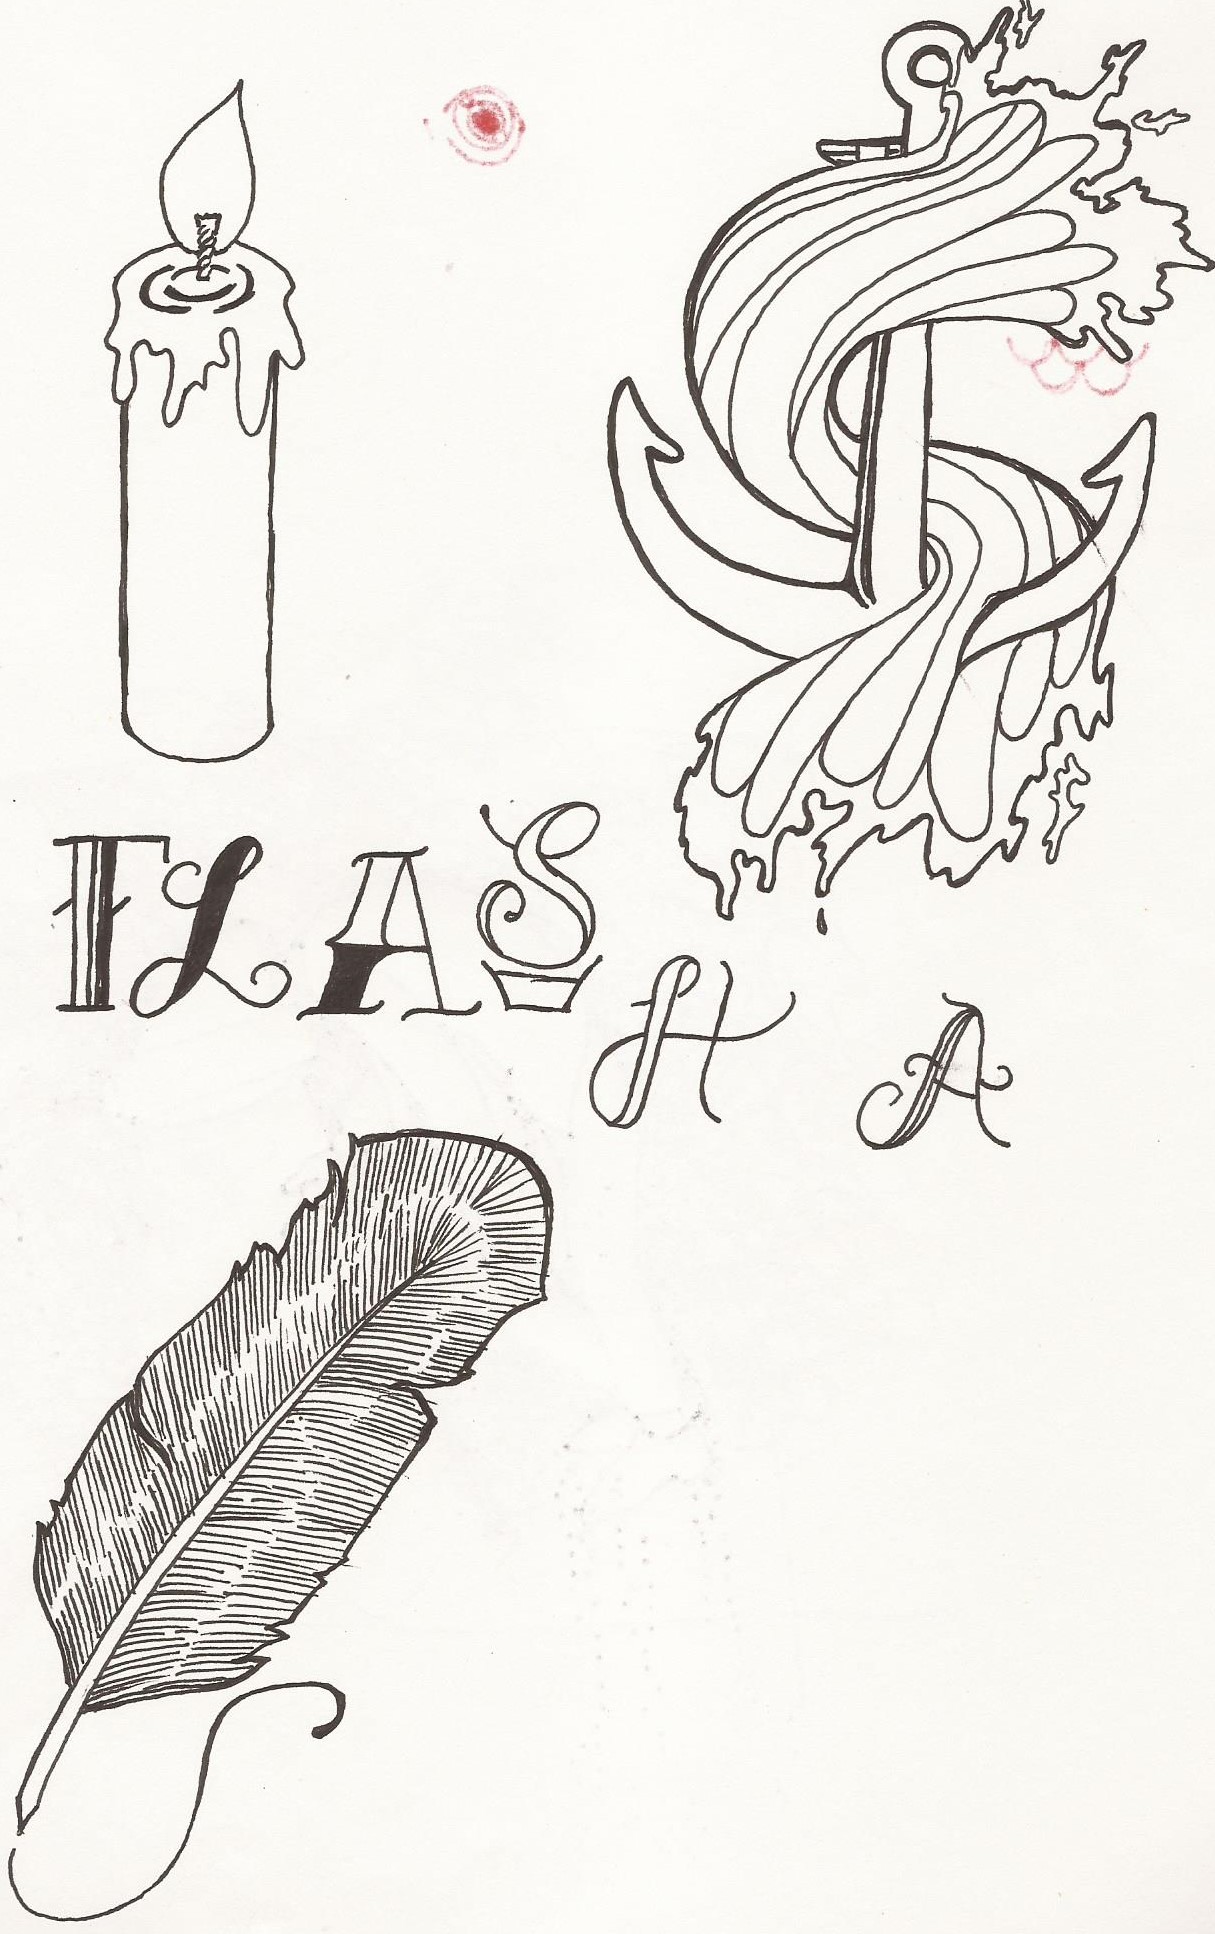 FLASH A